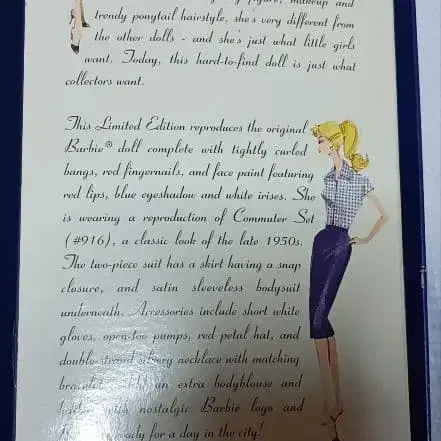 figure, makeup and
trendy ponytail hairstyle, she's very different from
the other dolls - and she's just what little girls
want. Today, this hard-to-find doll is just what
collectors want.
This Limited Edition reproduces the original
Barbie® doll complete with tightly curled
bangs, red fingernails, and face paint featuring
red lips, blue eyeshadow and white irises. She
is wearing a reproduction of Commuter Set
(#916), a classic look of the late 1950s.
The two-piece suit has a skirt having a snap
closure, and satin sleeveless bodysuit
underneath. Accessories include short white
gloves, open-toe pumps, red petal hat, and
double-strand silvery necklace with matching
an extra bodyblouse and
with nostalgic Barbie logo and
ready for a day in the city!